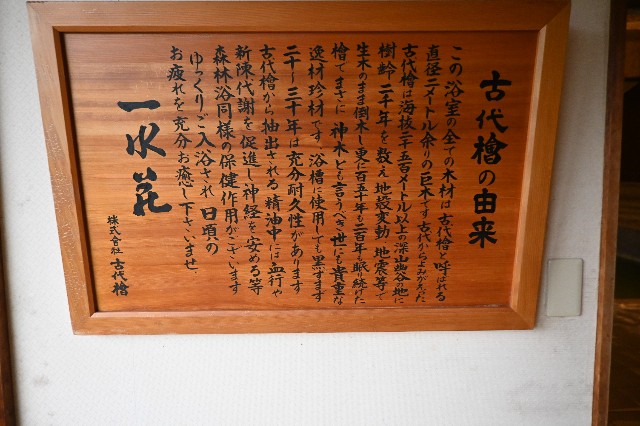 古代檜の由来
この浴室の全ての木材は古代檜と呼ばれる
直径二メートル余りの巨木です古代からよみがえった
古代檜は海抜二千五百メートル以上の深山幽谷の地に
樹齢二千年を数え地殻変動、地震等で
生木のまま倒木し更に百五十年も二百年も眠り続けた
檜でまさに神木とも言うべき世にも貴重な
逸材珍材です。浴槽に使用しても黒ずまず
二十〜三十年は充分耐久性があります
古代檜から抽出される精油中には血行や
新陳代謝を促進し神経を安める等
森林浴同様の保健作用がございます
ゆっくりご入浴され日頃の
お疲れを充分お癒し下さいませ
一水荘
株式會社 古代檜